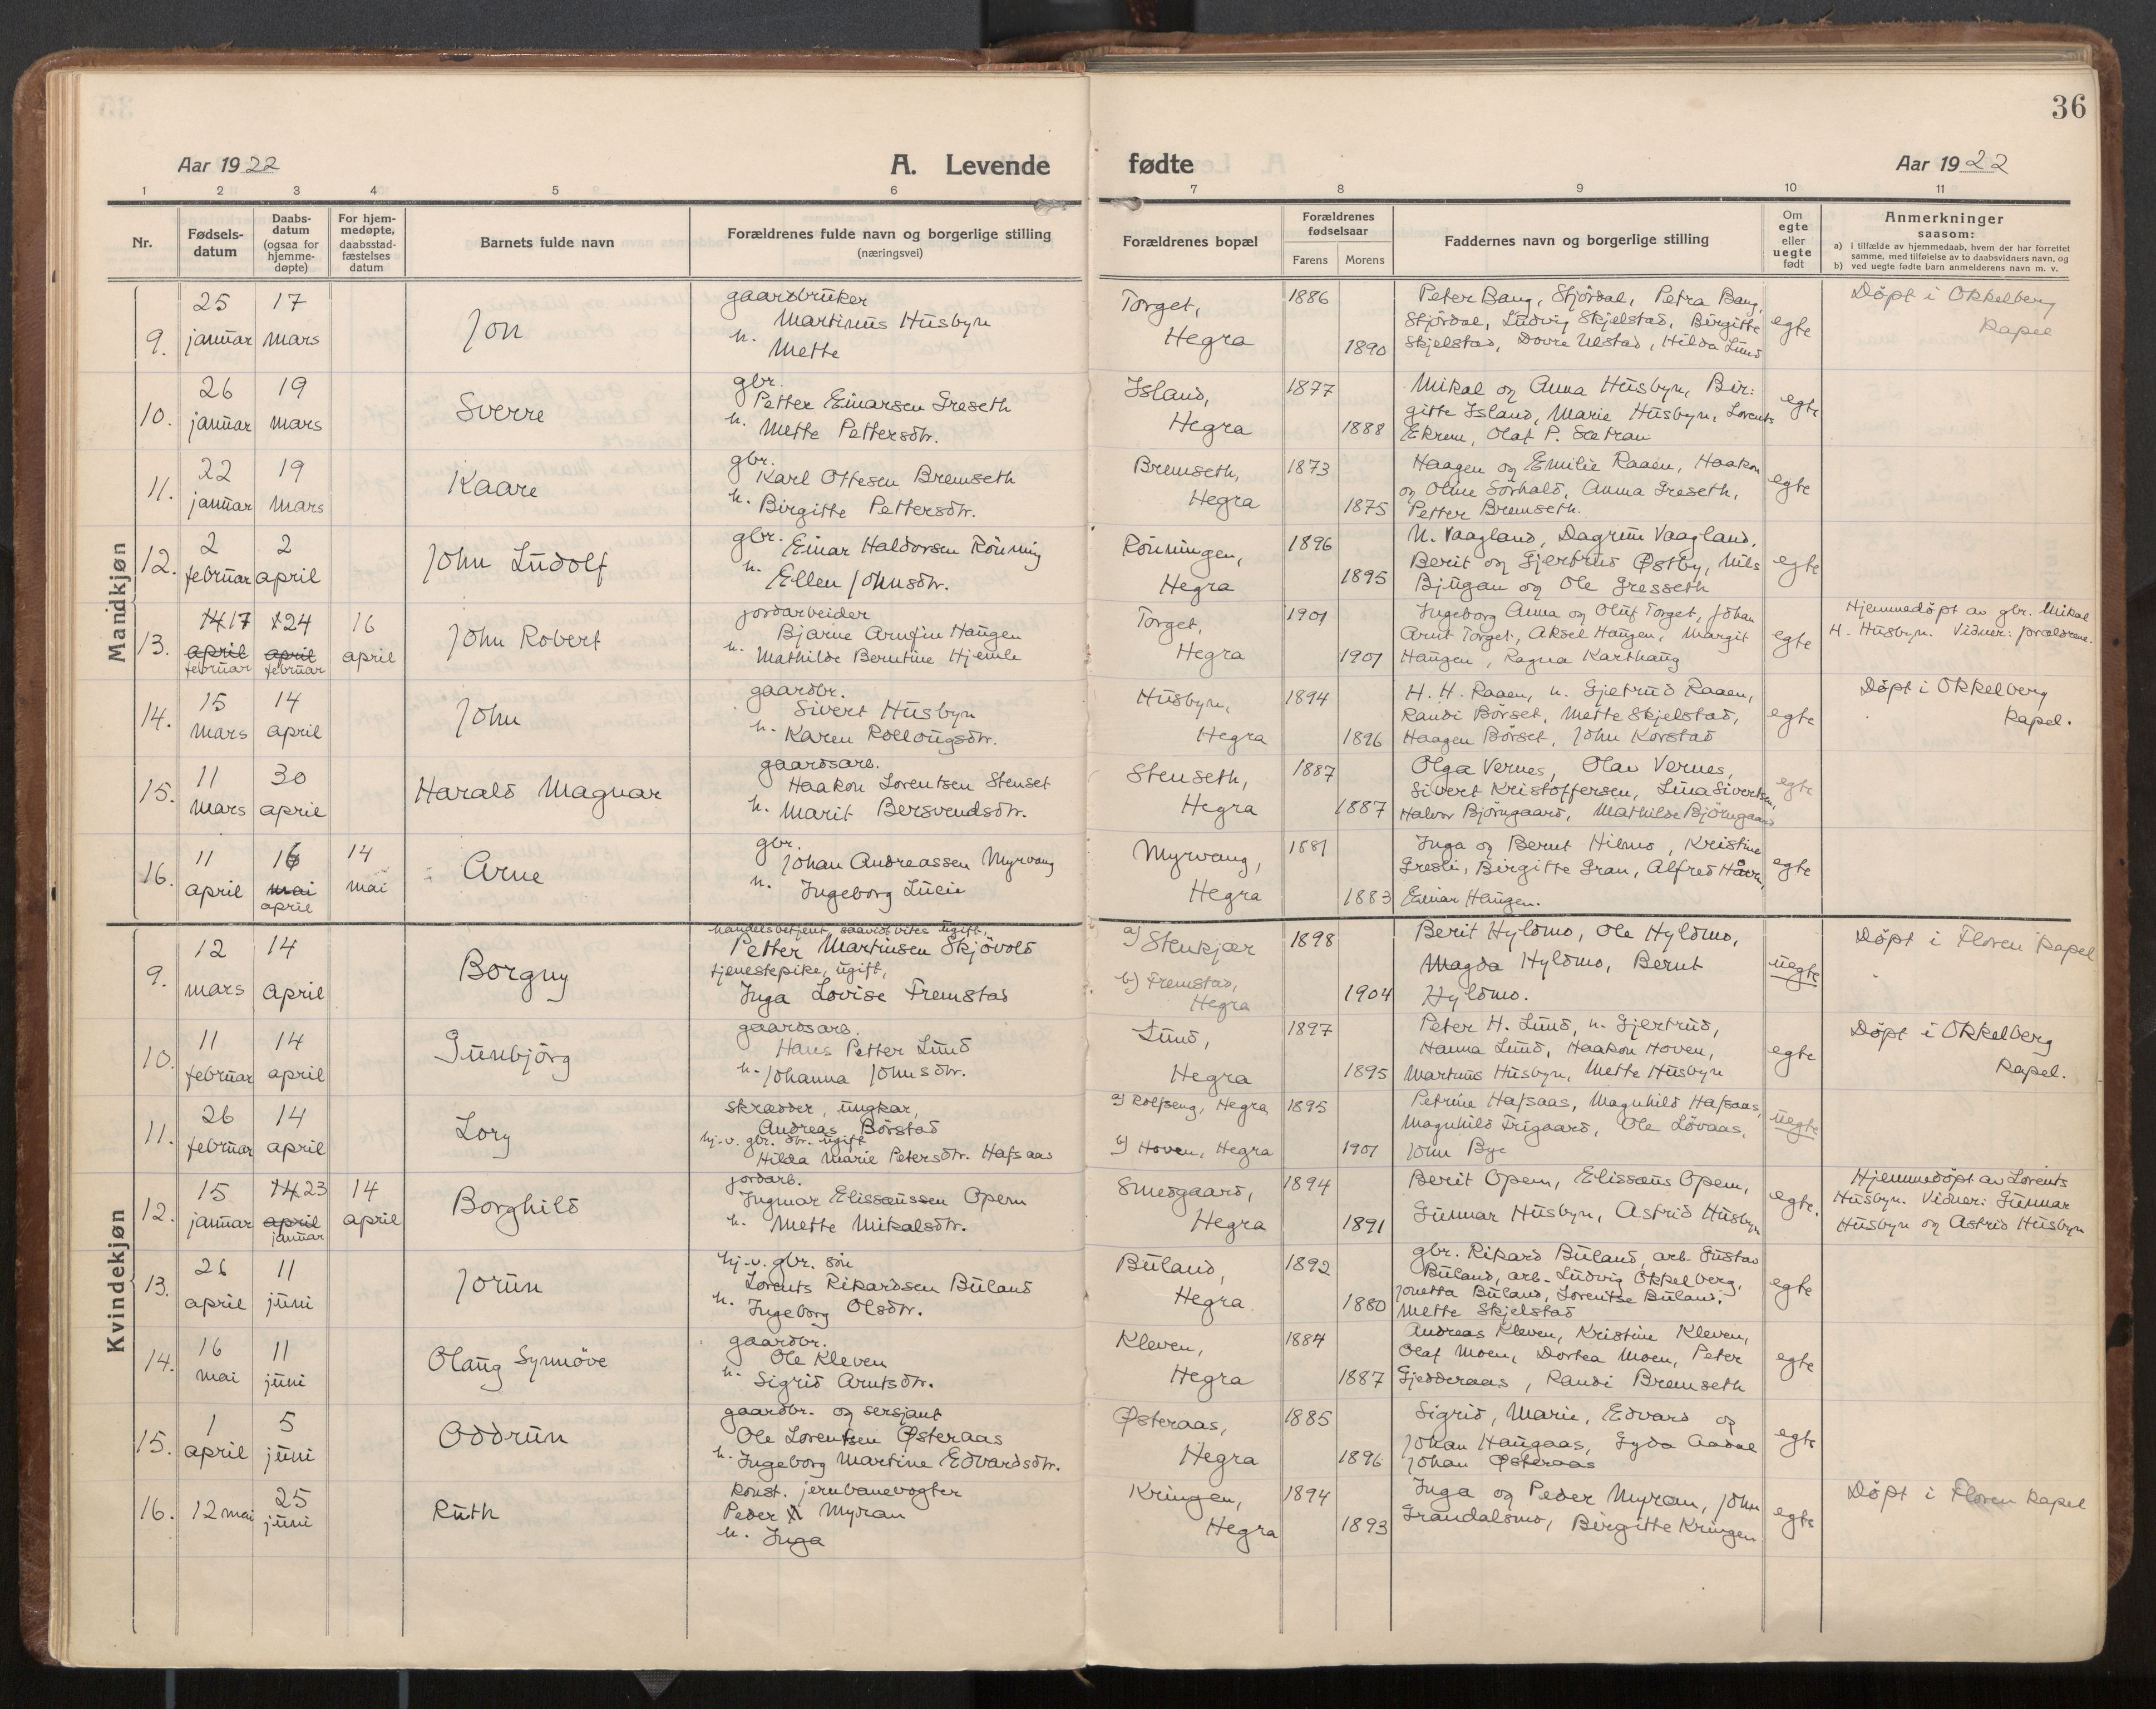 36
Aar 1922
A. Levende fødte
Aar 1922
1 2 3 4 5 6 7 8 9 10 11
Nr.
Fødsels-
datum
Daabs-
datum
(ogsaa for
hjemme-
døpte)
For hjem-
medøpte,
daabsstad-
fæstelses
datum
Barnets fulde navn
Forældrenes fulde navn og borgerlige stilling
(næringsvei)
Forældrenes bopæl
Forældrenes
fødselsaar
Farens Morens
Faddernes navn og borgerlige stilling
Om
egte
eller
uegte
født
Anmerkninger
saasom:
a) i tilfælde av hjemmedaab, hvem der har forrettet
samme, med tilføielse av to daabsvidners navn, og
b) ved uegte fødte barn anmelderens navn m. v.
Mandkjøn
9.
25 januar
17 mars
Jon
gaardbruker
Martinus Husbyn
h. Mette
Torget,
Hegra
1886
1890
Peter Bang, Stjördal, Petra Bang,
Stjördal, Ludvig Skjelstad, Birgitte
Skjelstad, Dovre Ulstad, Hilda Lund
egte
Döpt i Okkelberg
kapel
10.
26 januar
19 mars
Sverre
gbr.
Petter Einarsen Greseth
h. Mette Pettersdtr.
Island,
Hegra
1877
1888
Mikal og Anna Husbyn, Bir:
gitte Island, Marie Husbyn, Lorents
Ekren, Olaf P. Sætran
egte
11.
22 januar
19 mars
Kaare
gbr.
Karl Ottesen Bremseth
h. Birgitte Pettersdtr.
Bremseth,
Hegra
1873
1875
Haagen og Emilie Raaen, Haakon
og Oline Sörhald, Anna Greseth,
Petter Bremseth.
egte
12.
2 februar
2 april
John Ludolf
gbr. Einar Haldorsen Rönning
h. Ellen Johnsdtr.
Rönningen,
Hegra
1896
1895
N. Vaagland, Dagrun Vaagland,
Berit og Gjertrud Østby, Nils
Bjugan og Ole Gresseth
egte
13.
14 17
april
februar
1 24
april
februar
16 april
John Robert
jordarbeider
Bjarne Arnfin Haugen
h. Mathilde Berntine Hjemle
Torget,
Hegra
1901
1901
Ingeborg Anna og Oluf Torget, Johan
Arnt Torget, Aksel Haugen, Margit
Haugen, Ragna Karthaug
egte
Hjemmedöpt av gbr. Mikal
H. Husbyn. Vidner: forældrene.
14.
15 mars
14 april
John
gaardbr.
Sivert Husbyn
h. Karen Rollougsdtr.
Husbyn,
Hegra
1894
1896
H. H. Raaen, h. Gjetrud Raaen,
Randi Börset, Mette Skjelstad,
Haagen Börset, John Korstad
egte
Döpt i Okkelberg
kapel.
15.
11 mars
30 april
Harald Magnar
gaardsarb.
Haakon Lorentsen Stenset
h. Marit Bersvendsdtr.
Stenseth,
Hegra
1887
1887
Olga Vernes, Olav Vernes,
Sivert Kristoffersen, Lina Sivertsen,
Halvor Björngaard, Mathilde Björngaard
egte
16.
11 april
16
mai
april
14 mai
Arne
gbr.
Johan Andreassen Myrvang
h. Ingeborg Lucie
Myrvang,
Hegra
1881
1883
Inga og Bernt Hilmo, Kristine
Gresli, Birgitte Gran, Alfred Håvn,
Einar Haugen.
egte
Kvindekjøn
9.
12 mars
14 april
Borgny
handelsbetjent, saavidt vites ugift,
Petter Martinsen Skjövold
tjenestepike, ugift,
Inga Lovise Fremstad
a) Stenkjær
b) Fremstad,
Hegra
1898
1904
Berit Hyldmo, Ole Hyldmo,
Magda Hyldmo, Bernt
Hyldmo.
uegte
Döpt i Floren kapel
10.
11 februar
14 april
Gunbjörg
gaardsarb.
Hans Petter Lund
h. Johanna Johnsdtr.
Lund,
Hegra
1897
1895
Peter H. Lund, h. Gjertrud,
Hanna Lund, Haakon Hoven,
Martinus Husbyn, Mette Husbyn
egte
Döpt i Okkelberg
kapel.
11.
26 februar
14 april
Lory
skrædder, ungkar,
Andreas Börstad
hj.v. gbr. dtr. ugift
Hilda Marie Petersdtr. Hafsaas
a) Rolfseng, Hegra
b) Hoven, Hegra
1895
1901
Petrine Hafsaas, Magnhild Hafsaas,
Magnhild Trigaard, Ole Lövaas,
John Bye
uegte
12.
15 januar
14 23
april
januar
14 april
Borghild
jordarb.
Ingmar Elissæussen Opem
h. Mette Mikalsdtr.
Smedgaard,
Hegra
1894
1891
Berit Opem, Elissæus Opem,
Gunnar Husbyn, Astrid Husbyn
egte.
Hjemmedöpt av Lorents
Husbyn. Vidner: Gunnar
Husbyn og Astrid Husbyn
13.
26 april
11 juni
Jorun
hj.v. gbr. sön
Lorents Rikardsen Buland
h. Ingeborg Olsdtr.
Buland,
Hegra
1892
1880
gbr. Rikard Buland, arb. Gustav
Buland, arb. Ludvig Okkelberg,
Jonetta Buland, Lorentse Buland,
Mette Skjelstad
egte
14.
16 mai
11 juni
Olaug Synnöve
gaardbr.
Ole Kleven
h. Sigrid Arntsdtr.
Kleven,
Hegra
1884
1887
Andreas Kleven, Kristine Kleven,
Olaf Moen, Dortea Moen, Peter
Gjedderaas, Randi Bremseth
egte
15.
1 april
5 juni
Oddrun
gaardbr. og sersjant
Ole Lorentsen Østeraas
h. Ingeborg Martine Edvardsdtr.
Østeraas,
Hegra
1885
1896
Sigrid, Marie, Edvard og
Johan Haugaas, Gyda Aadal
Johan Østeraas
egte
16.
12 mai
25 juni
Ruth
konst. jernbanevogter
Peder Myran
h. Inga
Kringen,
Hegra
1894
1893
Inga og Peder Myran, John
Grandalsmo, Birgitte Kringen
egte
Döpt i Floren kapel